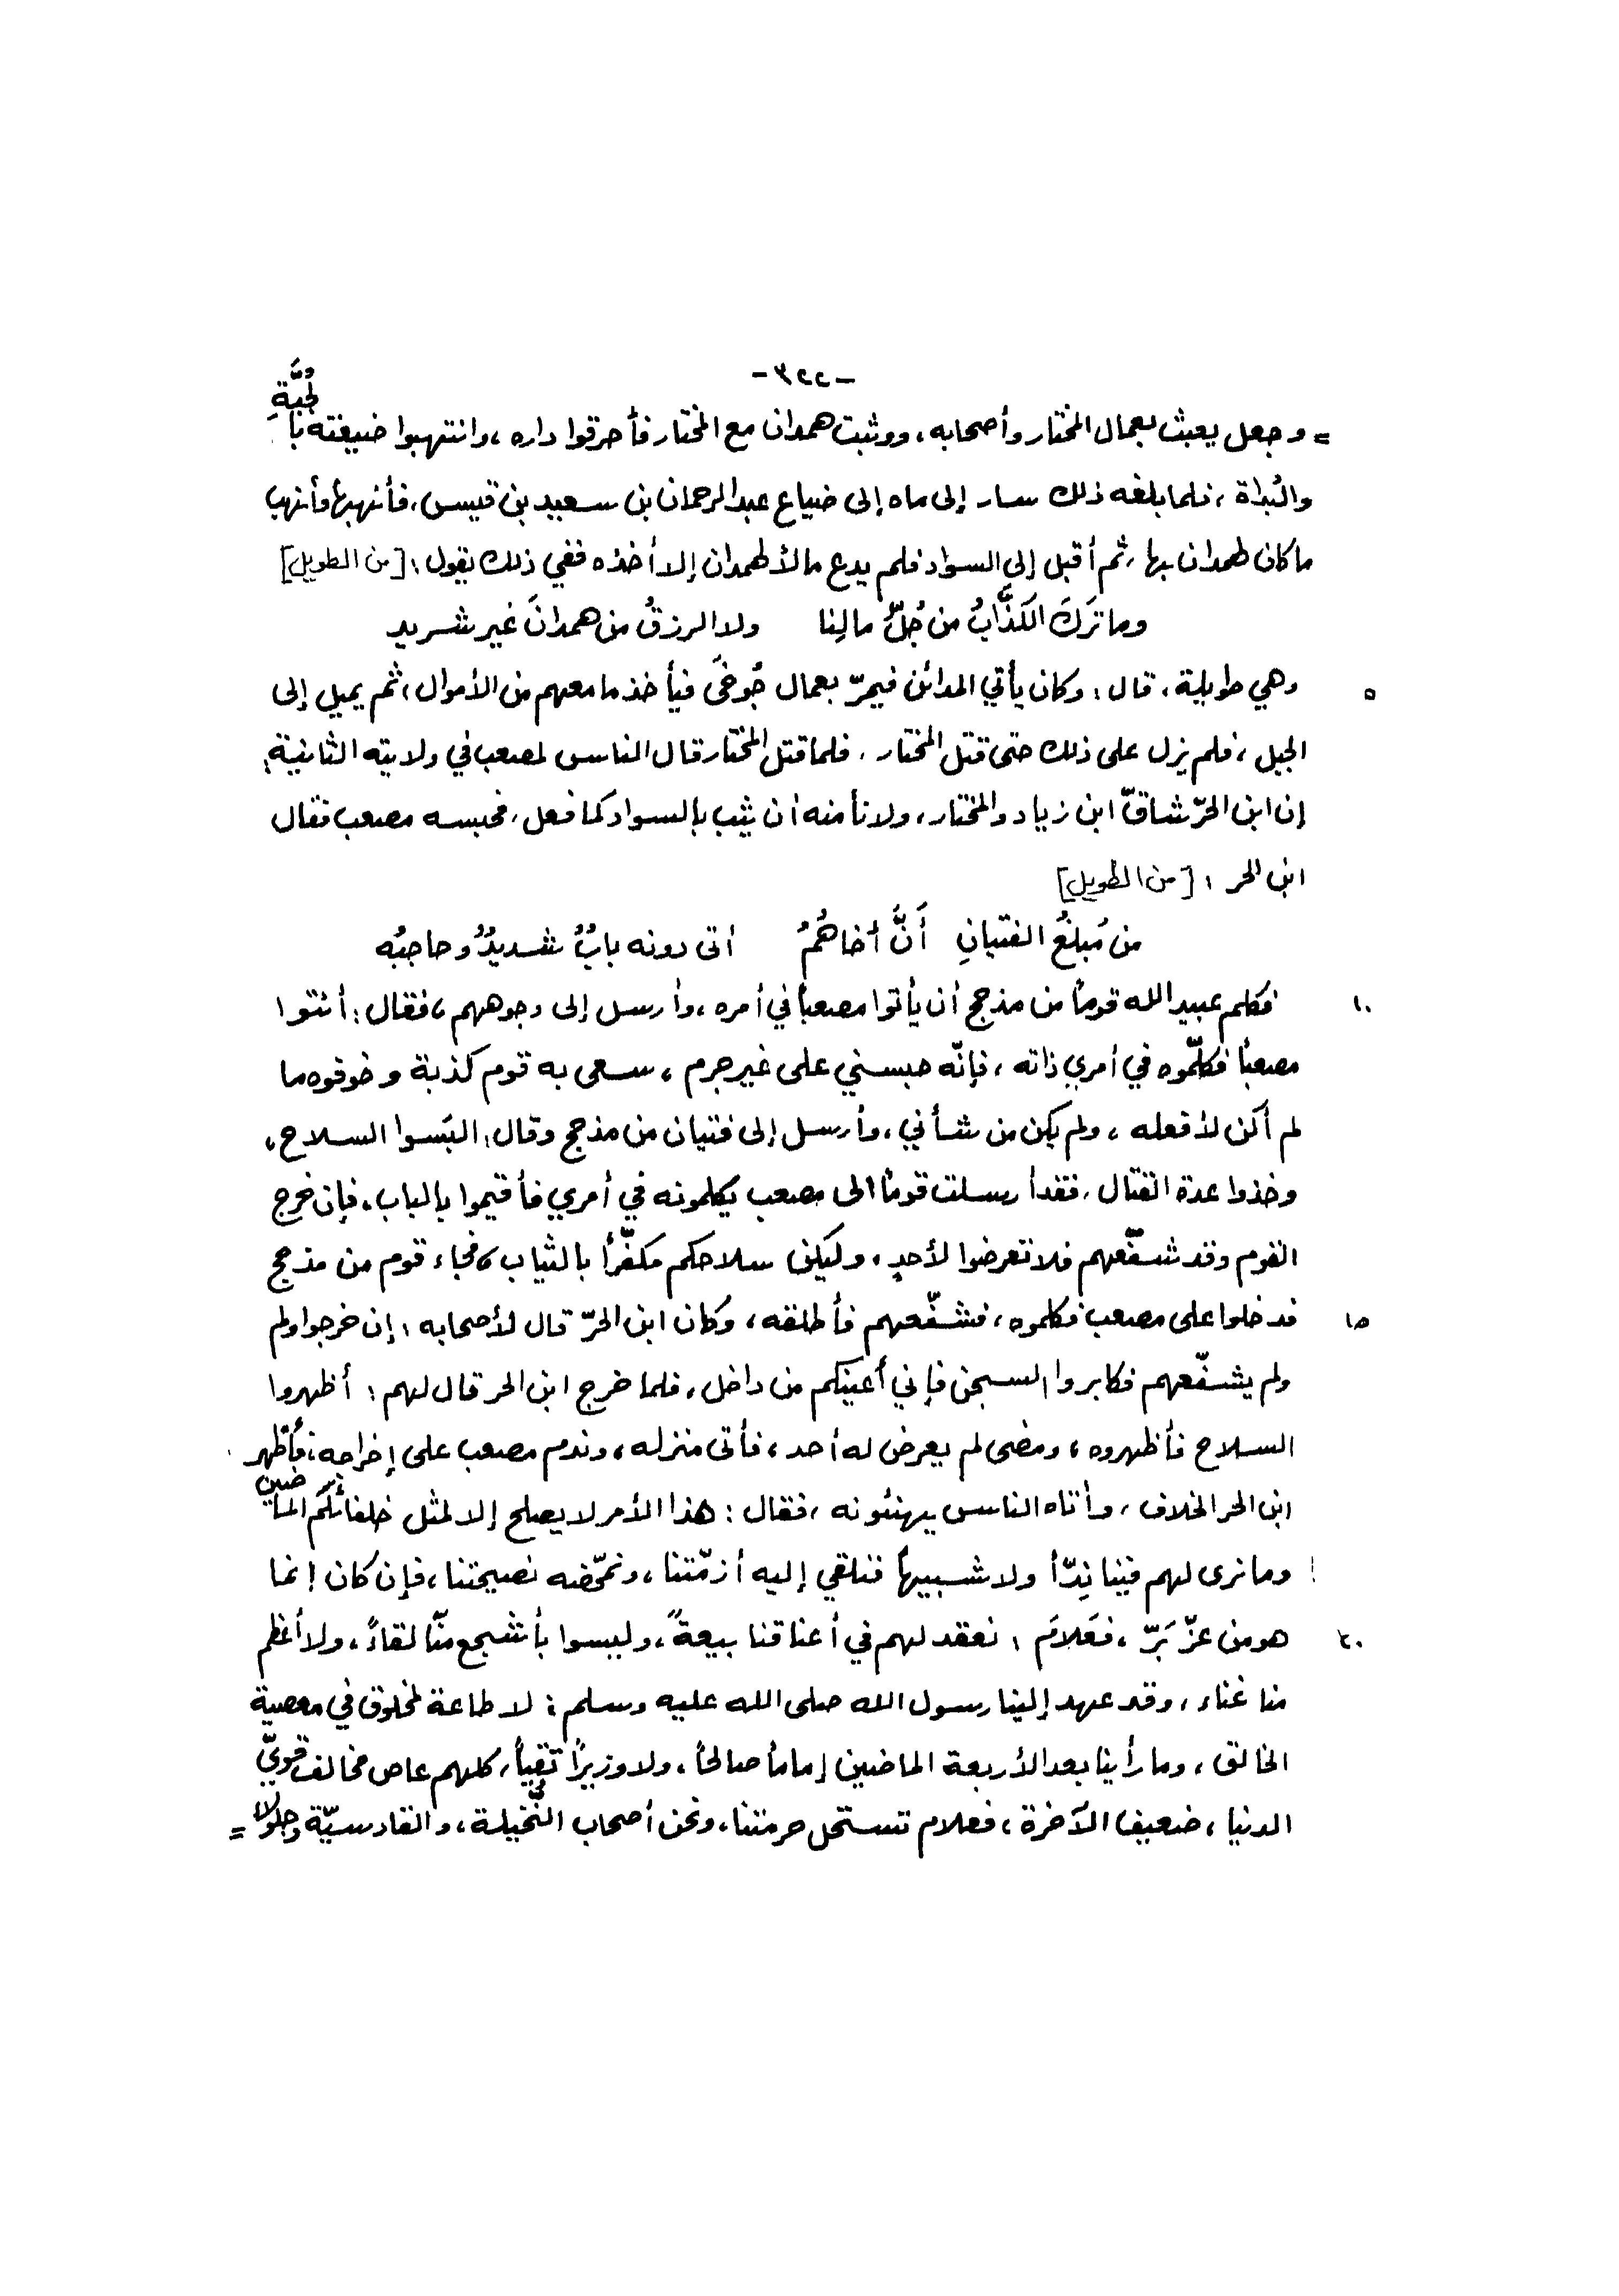 -٣٢٢-
= وجعل يعبث بعمال المختار وأصحابه، ووثبت همدان مع المختار فأحرقوا داره، وانتهبوا ضيعته بالجُبَّةِ
والبُداة، فلما بلغه ذلك سار إلى ماه إلى ضياع عبدالرحمان بن سعيد بن قيس، فأنهبها وأنهب
ما كان لهمدان بها، ثم أقبل إلى السواد فلم يدع مالاً لهمدان إلا أخذه ففي ذلك يقول: [من الطويل]
وما تَرَكَ الكَذَّابُ من جُلِّ مالِنا ولا الرزقُ من همدانَ غير شريد
٥ وهي طويلة، قال: وكان يأتي المدائن فيمرّ بعمال جُوخَى فيأخذ ما معهم من الأموال، ثم يميل إلى
الجبل، فلم يزل على ذلك حتى قتل المختار. فلما قتل المختار قال الناس لمصعب في ولايته الثانية:
إن ابن الحرّ شاقّ ابن زياد والمختار، ولا نأمنه أن يثب بالسواد كما فعل، فحبسه مصعب فقال
ابن الحر: [من الطويل]
من مُبلغُ الفتيانِ أَنَّ أخاهُمُ أتى دونه بابٌ شديدٌ وحاجبُه
١٠ فكلم عبيد الله قوماً من مذحج أن يأتوا مصعباً في أمره، وأرسل إلى وجوههم، فقال: أئتوا
مصعباً فكلّموه في أمري ذاته، فإنّه حبسني على غير جرم، سعى به قوم كذبة وخوفوه ما
لم أكن لأفعله، ولم يكن من شأني، وأرسل إلى فتيان من مذحج وقال: البَسوا السلاح،
وخذوا عدة القتال، فقد أرسلت قوماً الى مصعب يكلمونه في أمري فأقيموا بالباب، فإن خرج
القوم وقد شفّعهم فلا تعرضوا لأحدٍ، وليكن سلاحكم مكفّراً بالثياب، فجاء قوم من مذحج
١٥ فدخلوا على مصعب فكلموه، فشفّعهم فأطلقه، وكان ابن الحرّ قال لأصحابه: إن خرجوا ولم
ولم يشفّعهم فكابروا السجن فإني أُعينكم من داخل، فلما خرج ابن الحر قال لهم: أظهروا
السلاح فأظهروه، ومضى لم يعرض له أحد، فأتى منزله، وندم مصعب على إخراجه، فأظهر
ابن الحر الخلاف، وأتاه الناس يهنئونه، فقال: هذا الأمر لا يصلح إلا لمثل خلفائكم الماضين
وما نرى لهم فينا نِدّاً ولا شبيهاً فنلقي إليه أزمّتنا، ونمحّضه نصيحتنا، فإن كان إنما
٢٠ هو من عزّ بَزّ، فَعَلامَ نعقد لهم في أعناقنا بيعةً، وليسوا بأشجع منّا لقاءً، ولا أعظم
منا غناء، وقد عهد إلينا رسول الله صلى الله عليه وسلم: لا طاعة لمخلوق في معصية
الخالق، وما رأينا بعد الأربعة الماضين إماماً صالحاً، ولا وزيراً تقياً، كلهم عاص مخالف قويّ
الدنيا، ضعيف الآخرة، فعلام تستحل حرمتنا، ونحن أصحاب النُّخيلة، والقادسيّة وجلولا =